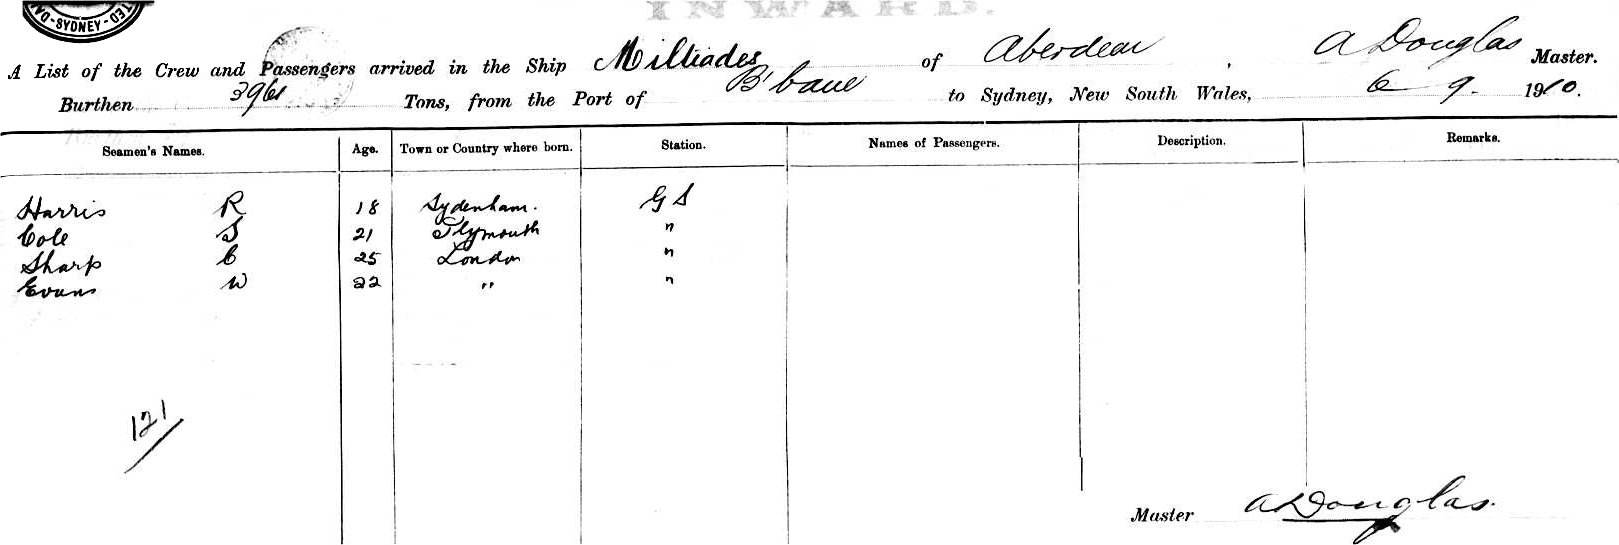 INWARD.
SYDNEY
A List of the Crew and Passengers arrived in the Ship Miltiades of Aberdeen, A Douglas Master.
Burthen 3961 Tons, from the Port of B'bane to Sydney, New South Wales, 6 9. 1910.
Seamen's Names. Age. Town or Country where born. Station. Names of Passengers. Description. Remarks.
Harris R 18 Sydenham. G S
Cole S 21 Plymouth "
Sharp C 25 London "
Evans W 22 " "
121
Master A Douglas.